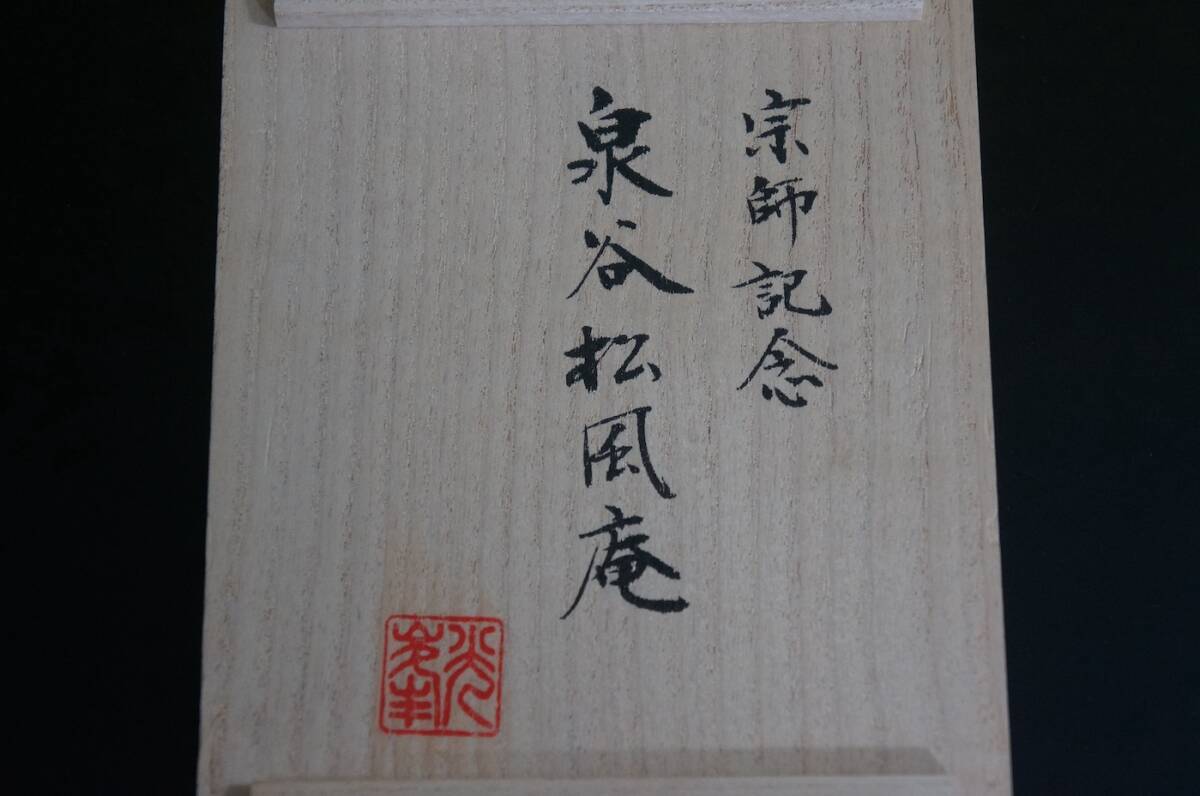 宗師記念
泉谷松風庵